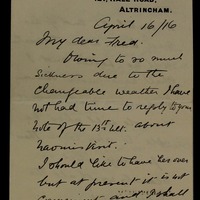 ALTRINCHAM.
April 16/16
My dear Fred.
Owing to so much
sickness due to the
changeable weather I have
not had time to reply to your
note of the 13th ult. about
Naomi's visit.
I should like to have her over
but at present it is not
convenient and I shall